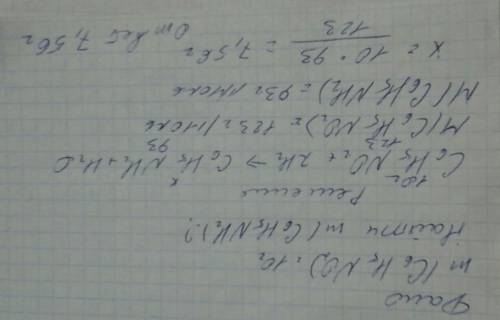 Дано
m(C6H5NO2) = 10г
Найти m(C6H5NH2)?
Решение
10г x
C6H5NO2 + 2H2 → C6H5NH2 + H2O
123 93
M(C6H5NO2) = 123г/моль
M(C6H5NH2) = 93г/моль
x = 10 · 93 / 123 = 7,56г
Ответ 7,56г